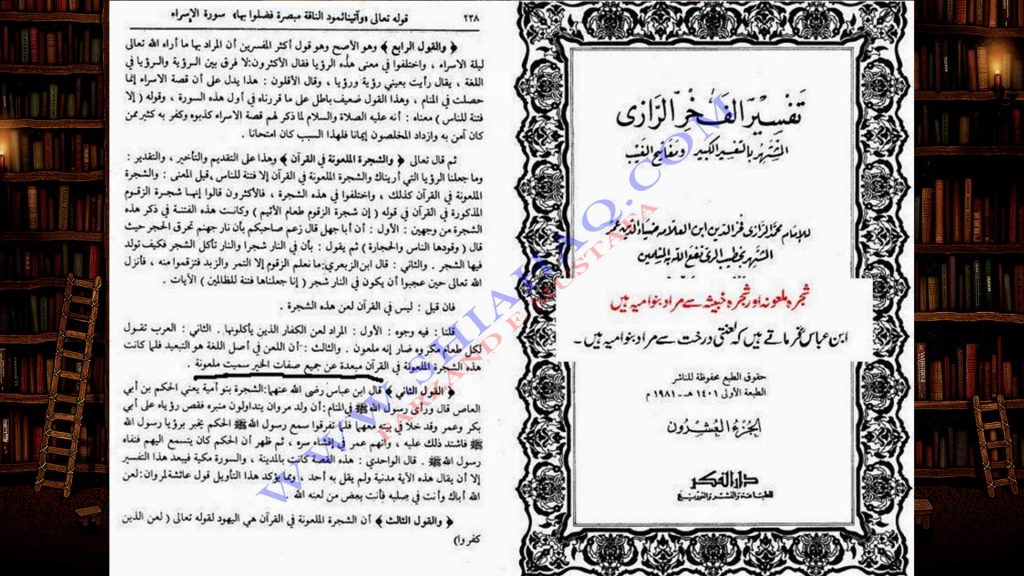 ٢٣٨ قوله تعالى «وآتينا ثمود الناقة مبصرة فظلموا بها» سورة الإسراء
﴿ والقول الرابع ﴾ وهو الأصح وهو قول أكثر المفسرين أن المراد بها ما أراه الله تعالى
ليلة الاسراء ، واختلفوا في معنى هذه الرؤيا فقال الأكثرون : لا فرق بين الرؤية والرؤيا في
اللغة ، يقال رأيت بعيني رؤية ورؤيا ، وقال الأقلون : هذا يدل على أن قصة الاسراء إنما
حصلت في المنام ، وهذا القول ضعيف باطل على ما قررناه في أول هذه السورة ، وقوله ( إلا
فتنة للناس ) معناه : أنه عليه الصلاة والسلام لما ذكر لهم قصة الاسراء كذبوه وكفر به كثير ممن
كان آمن به وازداد المخلصون إيمانا فلهذا السبب كان امتحانا .
ثم قال تعالى ﴿ والشجرة الملعونة في القرآن ﴾ وهذا على التقديم والتأخير ، والتقدير :
وما جعلنا الرؤيا التي أريناك والشجرة الملعونة في القرآن إلا فتنة للناس ، قيل المعنى : والشجرة
الملعونة في القرآن كذلك ، واختلفوا في هذه الشجرة ، فالأكثرون قالوا إنها شجرة الزقوم
المذكورة في القرآن في قوله ( إن شجرة الزقوم طعام الأثيم ) وكانت هذه الفتنة في ذكر هذه
الشجرة من وجهين : الأول : أن أبا جهل قال زعم صاحبكم بأن نار جهنم تحرق الحجر حيث
قال ( وقودها الناس والحجارة ) ثم يقول : بأن في النار شجرا والنار تأكل الشجر فكيف تولد
فيها الشجر . والثاني : قال ابن الزبعري : ما نعلم الزقوم إلا التمر والزبد فتزقموا منه ، فأنزل
الله تعالى حين عجبوا أن يكون في النار شجر ( إنا جعلناها فتنة للظالمين ) الآيات .
فان قيل : ليس في القرآن لعن هذه الشجرة .
قلنا : فيه وجوه : الأول : المراد لعن الكفار الذين يأكلونها . الثاني : العرب تقول
لكل طعام مكروه ضار إنه ملعون . والثالث : أن اللعن في أصل اللغة هو التبعيد فلما كانت
هذه الشجرة الملعونة في القرآن مبعدة عن جميع صفات الخير سميت ملعونة .
﴿ القول الثاني ﴾ قال ابن عباس رضي الله عنهما : الشجرة بنو أمية يعني الحكم بن أبي
العاص قال ورأى رسول الله ﷺ في المنام : أن ولد مروان يتداولون منبره فقص رؤياه على أبي
بكر وعمر وقد خلا في بيته معهما فلما تفرقوا سمع رسول الله ﷺ الحكم يخبر برؤيا رسول الله
ﷺ فاشتد ذلك عليه ، واتهم عمر في إفشاء سره ، ثم ظهر أن الحكم كان يتسمع اليهم فنفاه
رسول الله ﷺ . قال الواحدي : هذه القصة كانت بالمدينة ، والسورة مكية فيبعد هذا التفسير
إلا أن يقال هذه الآية مدنية ولم يقل به أحد ، ومما يؤكد هذا التأويل قول عائشة لمروان : لعن
الله أباك وأنت في صلبه فأنت بعض من لعنه الله .
﴿ والقول الثالث ﴾ أن الشجرة الملعونة في القرآن هي اليهود لقوله تعالى ( لعن الذين
كفروا)
تفسير الفخر الرازى
المشتهر بالتفسير الكبير ومفاتيح الغيب
للإمام محمد الرازى فخر الدين ابن العلامة ضياء الدين عمر
الشتهر بخطيب الرى نفع الله به المسلمين
شجرہ ملعونہ اور شجرہ خبیثہ سے مراد بنوامیہ ہیں
ابن عباس فرماتے ہیں کہ لعنتی درخت سے مراد بنوامیہ ہیں۔
حقوق الطبع محفوظة للناشر
الطبعة الأولى ١٤٠١ هـ - ١٩٨١ م
الجزء العشرون
دار الفكر
للطباعة والنشر والتوزيع
WWW.SHIAHAQ.COM
FARZAND E MUSTAFA